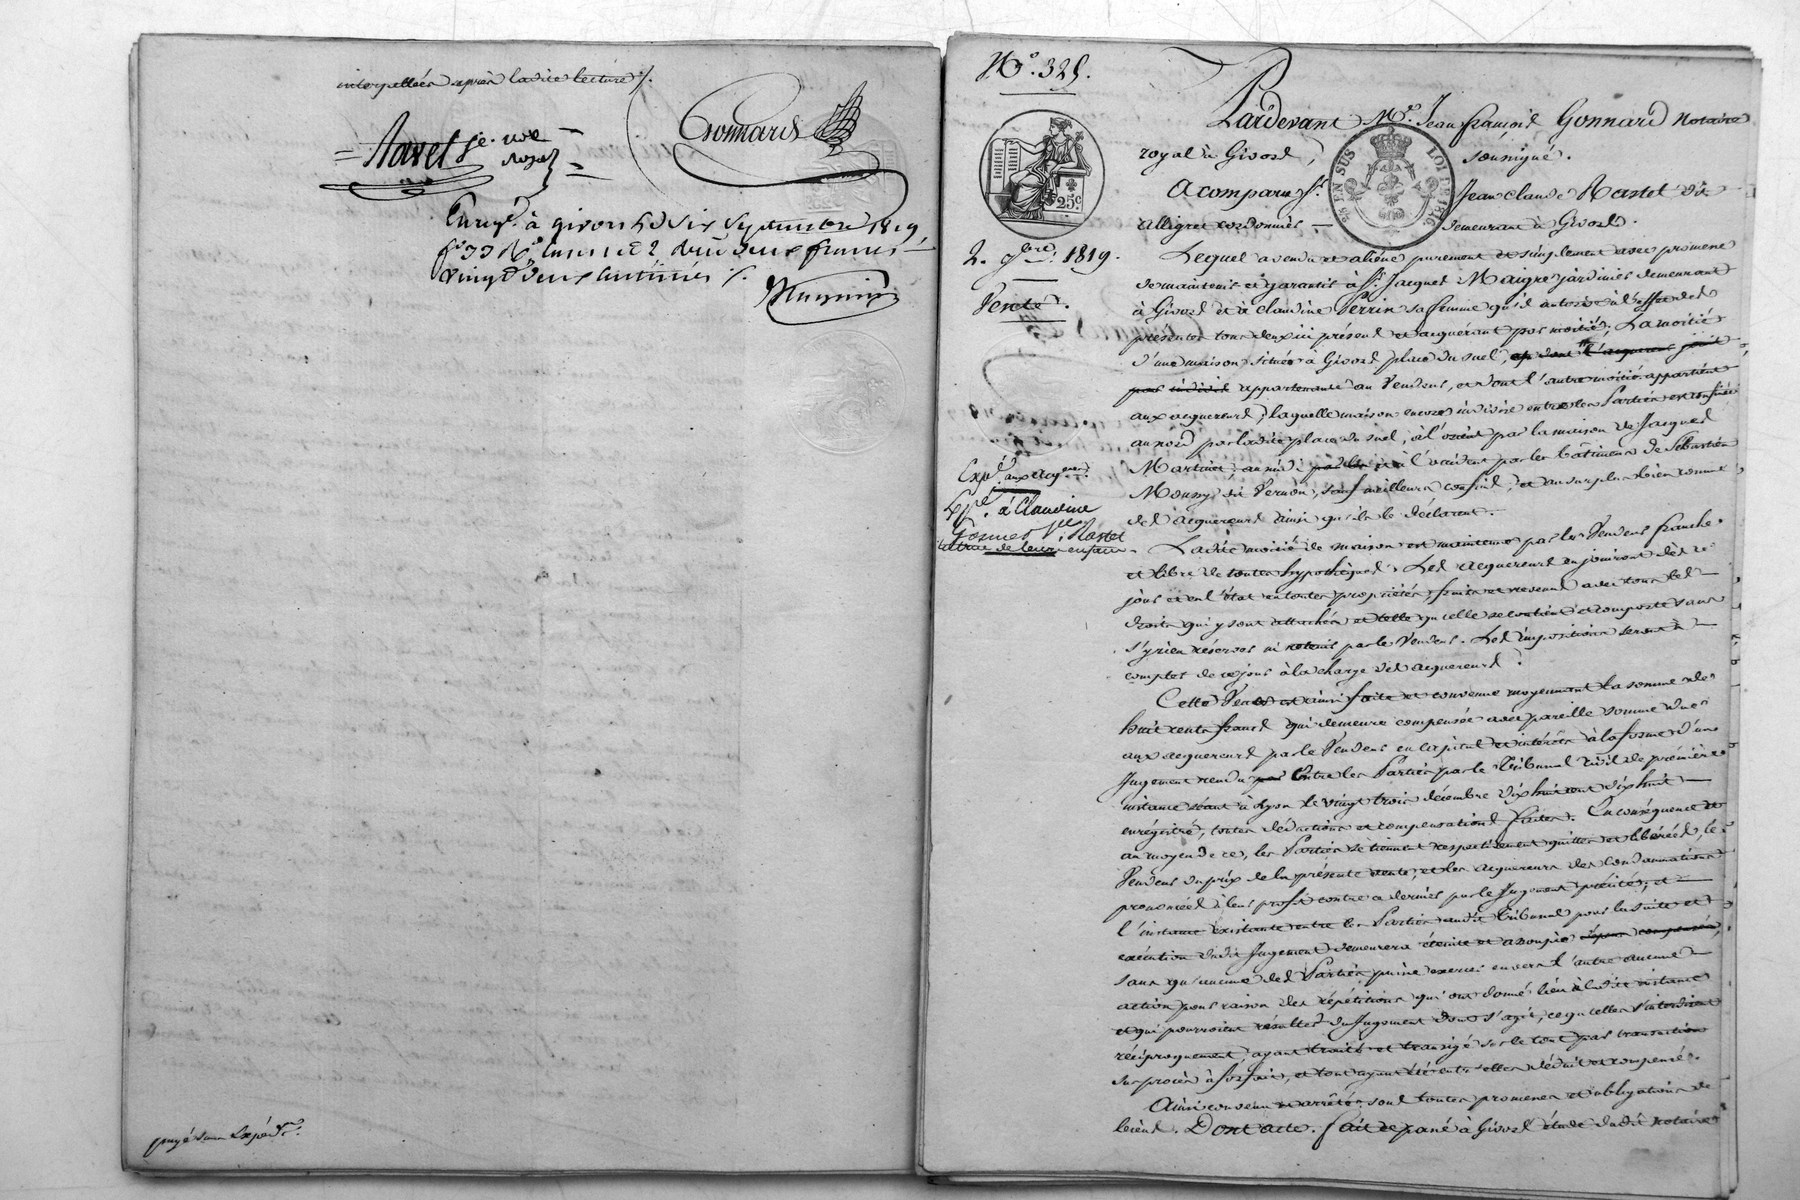 interpellées après ladite lecture /.
Ravel
Gonnard
Enreg.é à givors le six septembre 1819,
f.o 33 R.o Cases 1 et 2 deux francs
vingt deux centimes /.
payé sans Expéd.on
N.o 325.
25c
2. 9bre 1819.
Vente.
Exp.é aux acq.ereurs
Exp.é à Claudine
V.e Rastel
tutrice de leurs enfans
EN SUS LOI DE 1816
Pardevant M.e Jean françois Gonnard Notaire
royal à Givors, soussigné.
A comparu S.r Jean claude Rastel dit
Alligret cordonnier demeurant à Givors.
Lequel a vendu et aliéné purement et simplement avec promesse
de maintenir et garantir à S.r Jacques Maigre jardinier demeurant
à Givors et à claudine Perrin sa femme qu'il autorise à l'effet des
présentes tous deux ici présens et acquérant par moitié, La moitié
d'une maison située à Givors place du suel,
appartenante au Vendeur, et dont l'autre moitié appartient
aux acquereurs; laquelle maison encore indivise entre les Parties est confinée
au nord par ladite place du suel, à l'orient par la maison de Jacques
Martinet, au midi et à l'occident par les bâtimens de Sébastien
Mouny dit Vernon, sauf meilleurs confins, et au surplus bien connue
des acquereurs ainsi qu'ils le déclarent.
Ladite moitié de maison est maintenue par le Vendeur franche
et libre de toutes hypothèques. Les acquereurs en jouiront dès ce
jour et en l'état en toutes propriétés, fruits et revenus avec tous les
droits qui y sont attachés et telle qu'elle se contient et comporte sans
s'y rien réserver ni retenir par le Vendeur. Les impositions seront à
compter de ce jour à la charge des acquereurs.
Cette Vente est ainsi faite et convenue moyennant la somme de
huit cents francs qui demeure compensée avec pareille somme due
aux acquereurs par le Vendeur en capital et intérêts à la forme d'un
Jugement rendu entre les Parties par le Tribunal civil de première
instance séant à Lyon le vingt trois décembre dix huit cent dix huit
enrégistré, toutes déductions et compensations faites. En conséquence et
au moyen de ce, les Parties se tiennent respectivement quittes et libérées, le
Vendeur du prix de la présente vente, et les acquereurs des condamnations
prononcées à leur profit contre ce dernier par le Jugement précité; et
l'instance existante entre les Parties audit tribunal pour la suite et
exécution dudit Jugement demeurera éteinte et assoupie
sans qu'aucune des Parties puisse exercer envers l'autre aucune
action pour raison des répétitions qui ont donné lieu à ladite instance
et qui pourroient résulter du Jugement dont s'agit, ce qu'elles s'interdisent
réciproquement, ayant traité et transigé sur le tout par transaction
sur procès à forfait, et tout ayant été entr'elles déduit et compensé.
Ainsi convenu et arrêté, sous toutes promesses et obligations de
biens. Dont acte. fait et passé à Givors étude dudit notaire